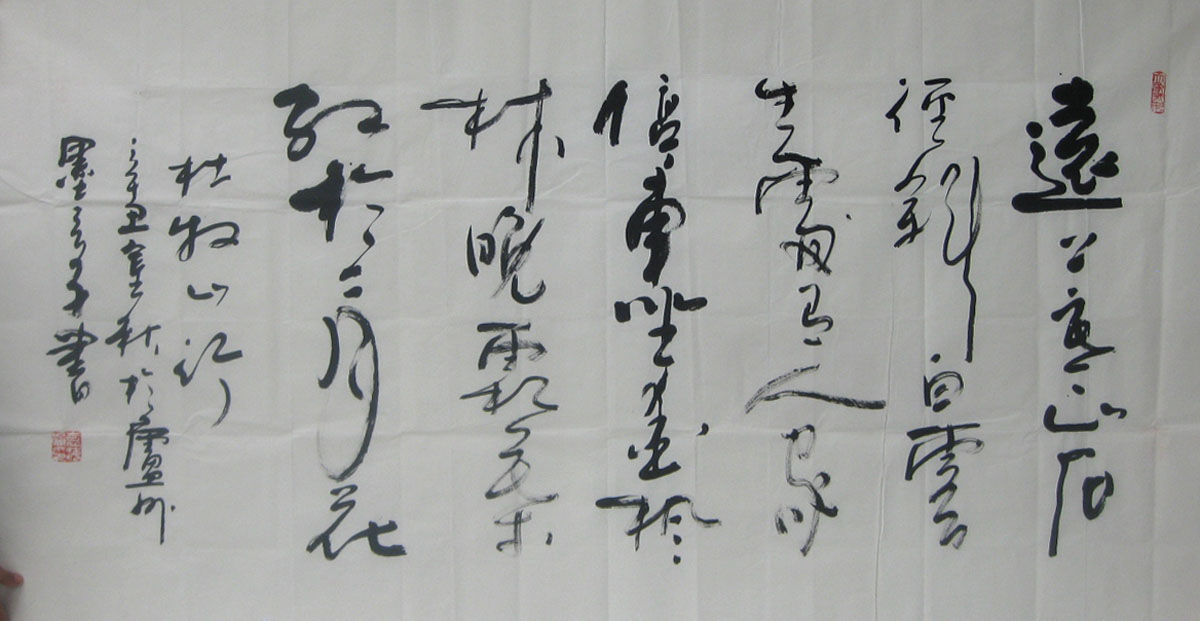 遠上寒山石
徑斜白雲
生處有人家
停車坐愛楓
林晚霜葉
紅於二月花
杜牧山行
辛丑金秋於廬州
墨書